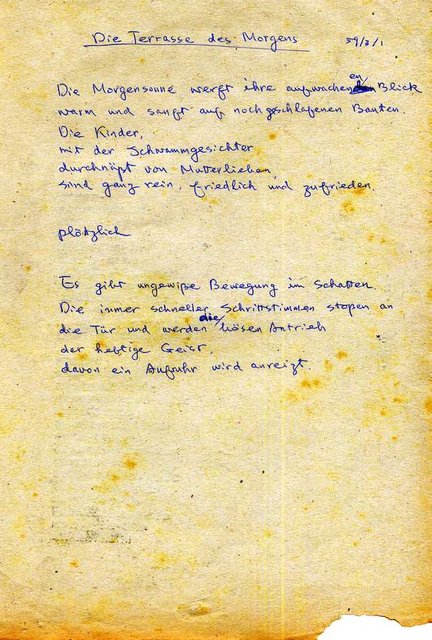 Die Terrasse des Morgens 59/3/1
Die Morgensonne werft ihre aufwachenen Blick
warm und sanft auf noch geschlafenen Bauten.
Die Kinder,
mit der Schwammgesichter
durchnäpt von Mutterlieben,
sind ganz rein, friedlich und zufrieden
plötzlich
Es gibt ungewiße Bewegung im Schatten.
Die immer schneller Schrittstimmen stopen an
die Tür und werden die bösen Antrieb
der heftige Geist,
davon ein Aufruhr wird anreizt.